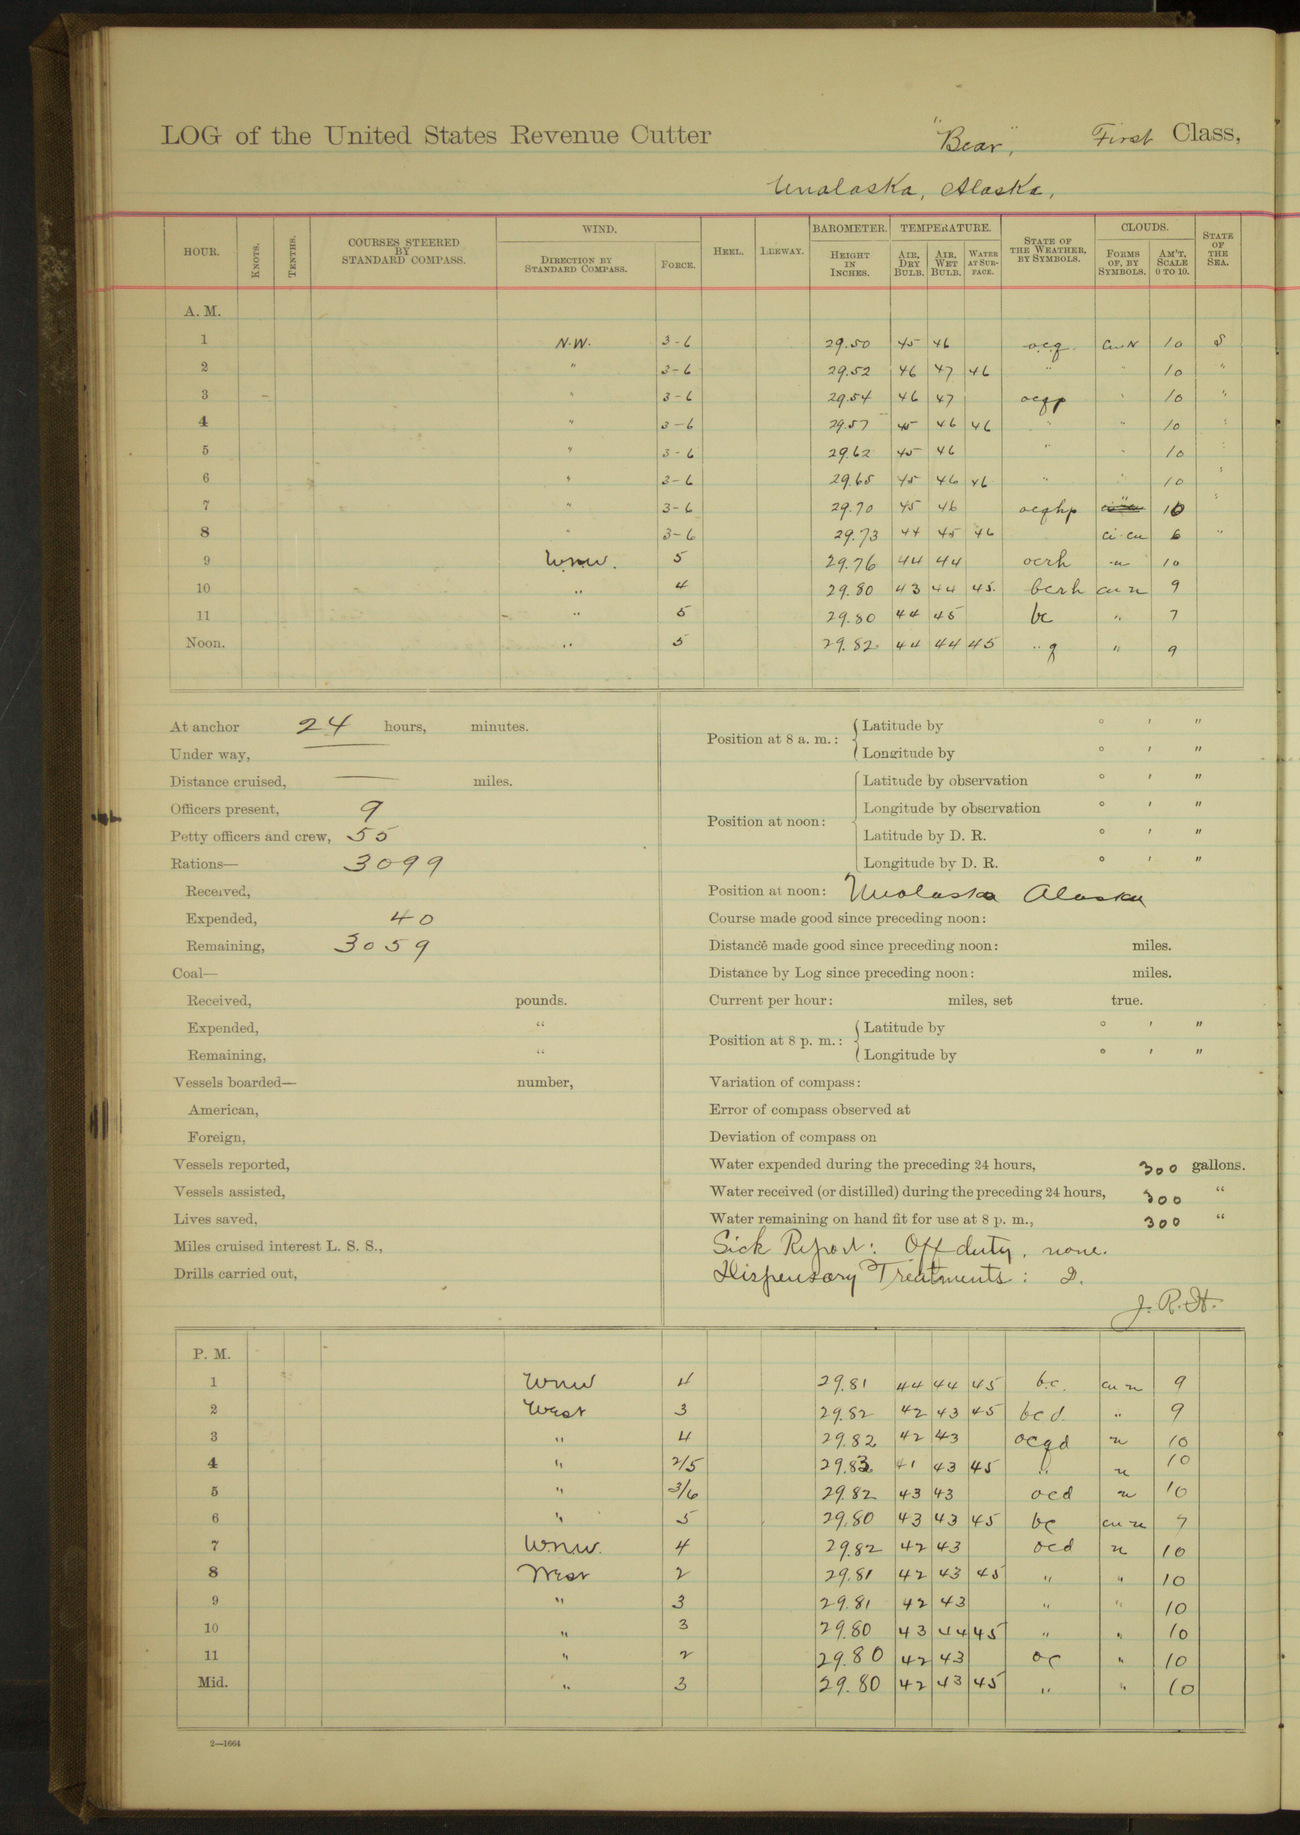 LOG of the United States Revenue Cutter "Bear", First Class,
Unalaska, Alaska,
HOUR. KNOTS. TENTHS. COURSES STEERED BY STANDARD COMPASS. WIND. DIRECTION BY STANDARD COMPASS. FORCE. HEEL. LEEWAY. BAROMETER. HEIGHT IN INCHES. TEMPERATURE. AIR, DRY BULB. AIR, WET BULB. WATER AT SURFACE. STATE OF THE WEATHER, BY SYMBOLS. CLOUDS. FORMS OF, BY SYMBOLS. AM'T, SCALE 0 TO 10. STATE OF THE SEA.
A. M.
1 N.W. 3-6 29.50 45 46 ocq. Cu-N 10 S
2 " 3-6 29.52 46 47 46 " " 10 "
3 " 3-6 29.54 46 47 ocqp " 10 "
4 " 3-6 29.57 45 46 46 " " 10 "
5 " 3-6 29.62 45 46 " " 10 "
6 " 3-6 29.65 45 46 46 " " 10 "
7 " 3-6 29.70 45 46 ocqhp 10 "
8 " 3-6 29.73 44 45 46 ci-cu 6 "
9 WNW. 5 29.76 44 44 ocrh n 10
10 " 4 29.80 43 44 45. bcrh cu n 9
11 " 5 29.80 44 45 bc " 7
Noon. " 5 29.82 44 44 45 " q " 9
At anchor 24 hours, minutes.
Under way,
Distance cruised, — miles.
Officers present, 9
Petty officers and crew, 55
Rations— 3099
Received,
Expended, 40
Remaining, 3059
Coal—
Received, pounds.
Expended, "
Remaining, "
Vessels boarded— number,
American,
Foreign,
Vessels reported,
Vessels assisted,
Lives saved,
Miles cruised interest L. S. S.,
Drills carried out,
Position at 8 a. m.: Latitude by ° ′ ″
Longitude by ° ′ ″
Position at noon: Latitude by observation ° ′ ″
Longitude by observation ° ′ ″
Latitude by D. R. ° ′ ″
Longitude by D. R. ° ′ ″
Position at noon: Unalaska Alaska
Course made good since preceding noon:
Distance made good since preceding noon: miles.
Distance by Log since preceding noon: miles.
Current per hour: miles, set true.
Position at 8 p. m.: Latitude by ° ′ ″
Longitude by ° ′ ″
Variation of compass:
Error of compass observed at
Deviation of compass on
Water expended during the preceding 24 hours, 300 gallons.
Water received (or distilled) during the preceding 24 hours, 300 "
Water remaining on hand fit for use at 8 p. m., 300 "
Sick Report: Off duty, none.
Dispensary Treatments: 2.
J. R. H.
P. M.
1 WNW 4 29.81 44 44 45 bc. cu n 9
2 West 3 29.82 42 43 45 bcd. " 9
3 " 4 29.82 42 43 ocqd n 10
4 " 2/5 29.83 41 43 45 " n 10
5 " 3/6 29.82 43 43 ocd n 10
6 " 5 29.80 43 43 45 bc cu n 7
7 WNW. 4 29.82 42 43 ocd n 10
8 West 2 29.81 42 43 45 " " 10
9 " 3 29.81 42 43 " " 10
10 " 3 29.80 43 44 45 " " 10
11 " 2 29.80 42 43 oc " 10
Mid. " 3 29.80 42 43 45 " " 10
2—1664